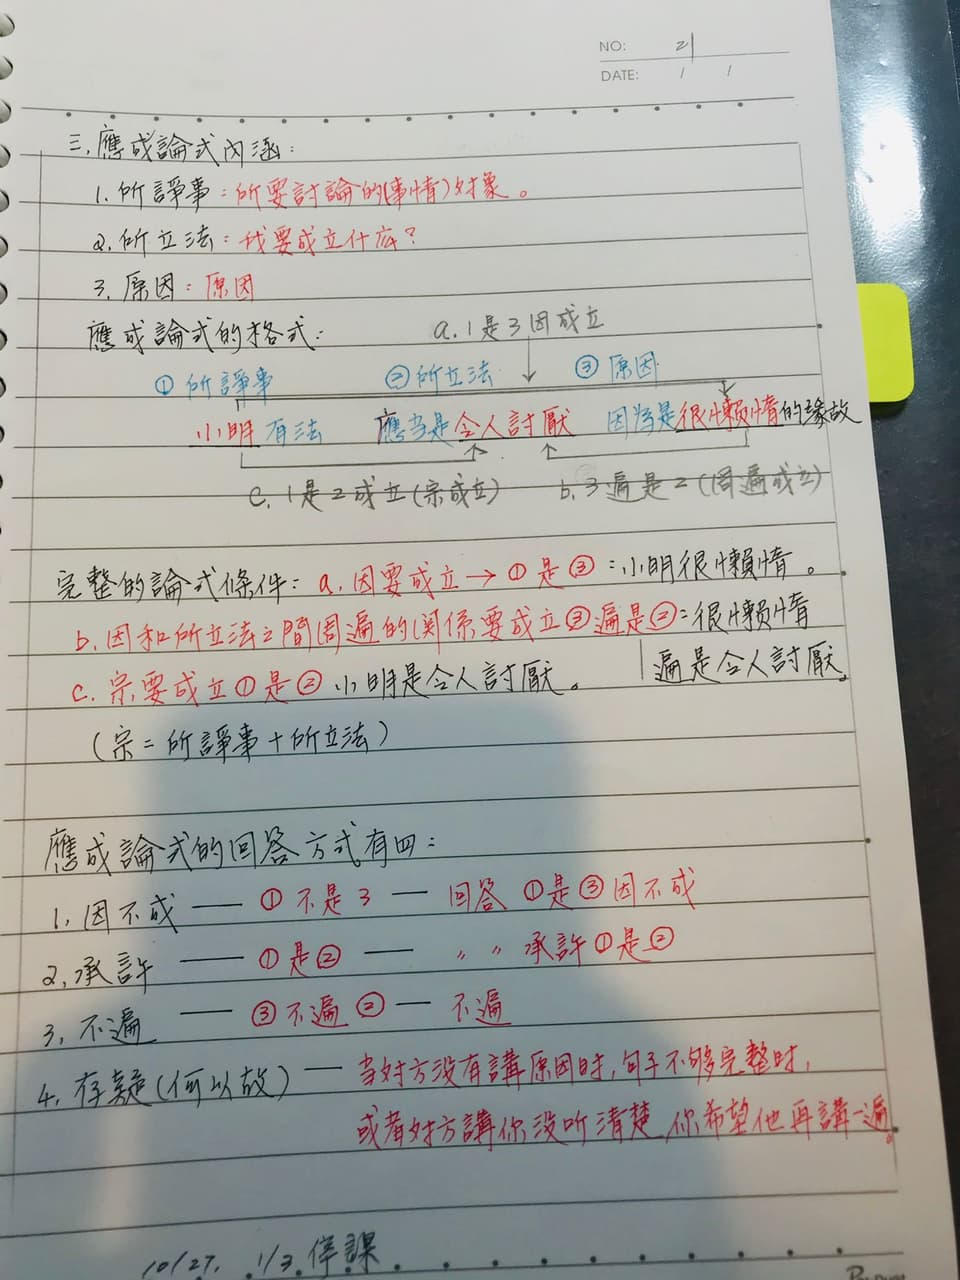 NO: 21
DATE: / /
三.應成論式內涵:
1.所諍事:所要討論的(事情)对象。
2.所立法:我要成立什庅?
3.原因:原因
應成論式的格式:
a.1是3因成立
① 所諍事 ②所立法 ③ 原因
小明有法 應当是令人討厭 因為是很懶惰的缘故
c.1是2成立(宗成立) b.3遍是2(周遍成立)
完整的論式條件: a.因要成立→①是③:小明很懶惰。
b.因和所立法之間周遍的関係要成立③遍是②:很懶惰
遍是令人討厭。
c.宗要成立①是② 小明是令人討厭。
(宗=所諍事+所立法)
應成論式的回答方式有四:
1.因不成 — ①不是3 — 回答 ①是③因不成
2.承許 — ①是② — 〃 〃 承許①是②
3.不遍 — ③不遍② — 不遍
4.存疑(何以故) — 当对方没有講原因时,句子不够完整时,
或者对方講你没听清楚,你希望他再講一遍。
10/27. 1/3.停課